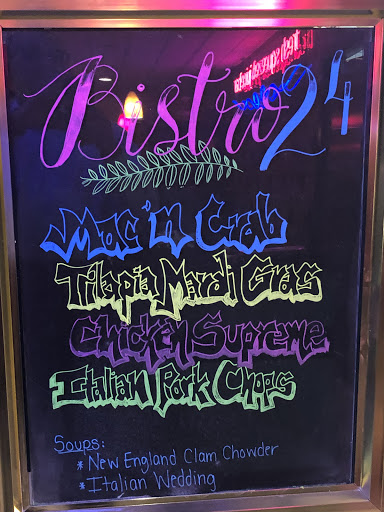 Bistro 24
Mac 'n Crab
Tilapia Mardi Gras
Chicken Supreme
Italian Pork Chops
Soups:
* New England Clam Chowder
* Italian Wedding